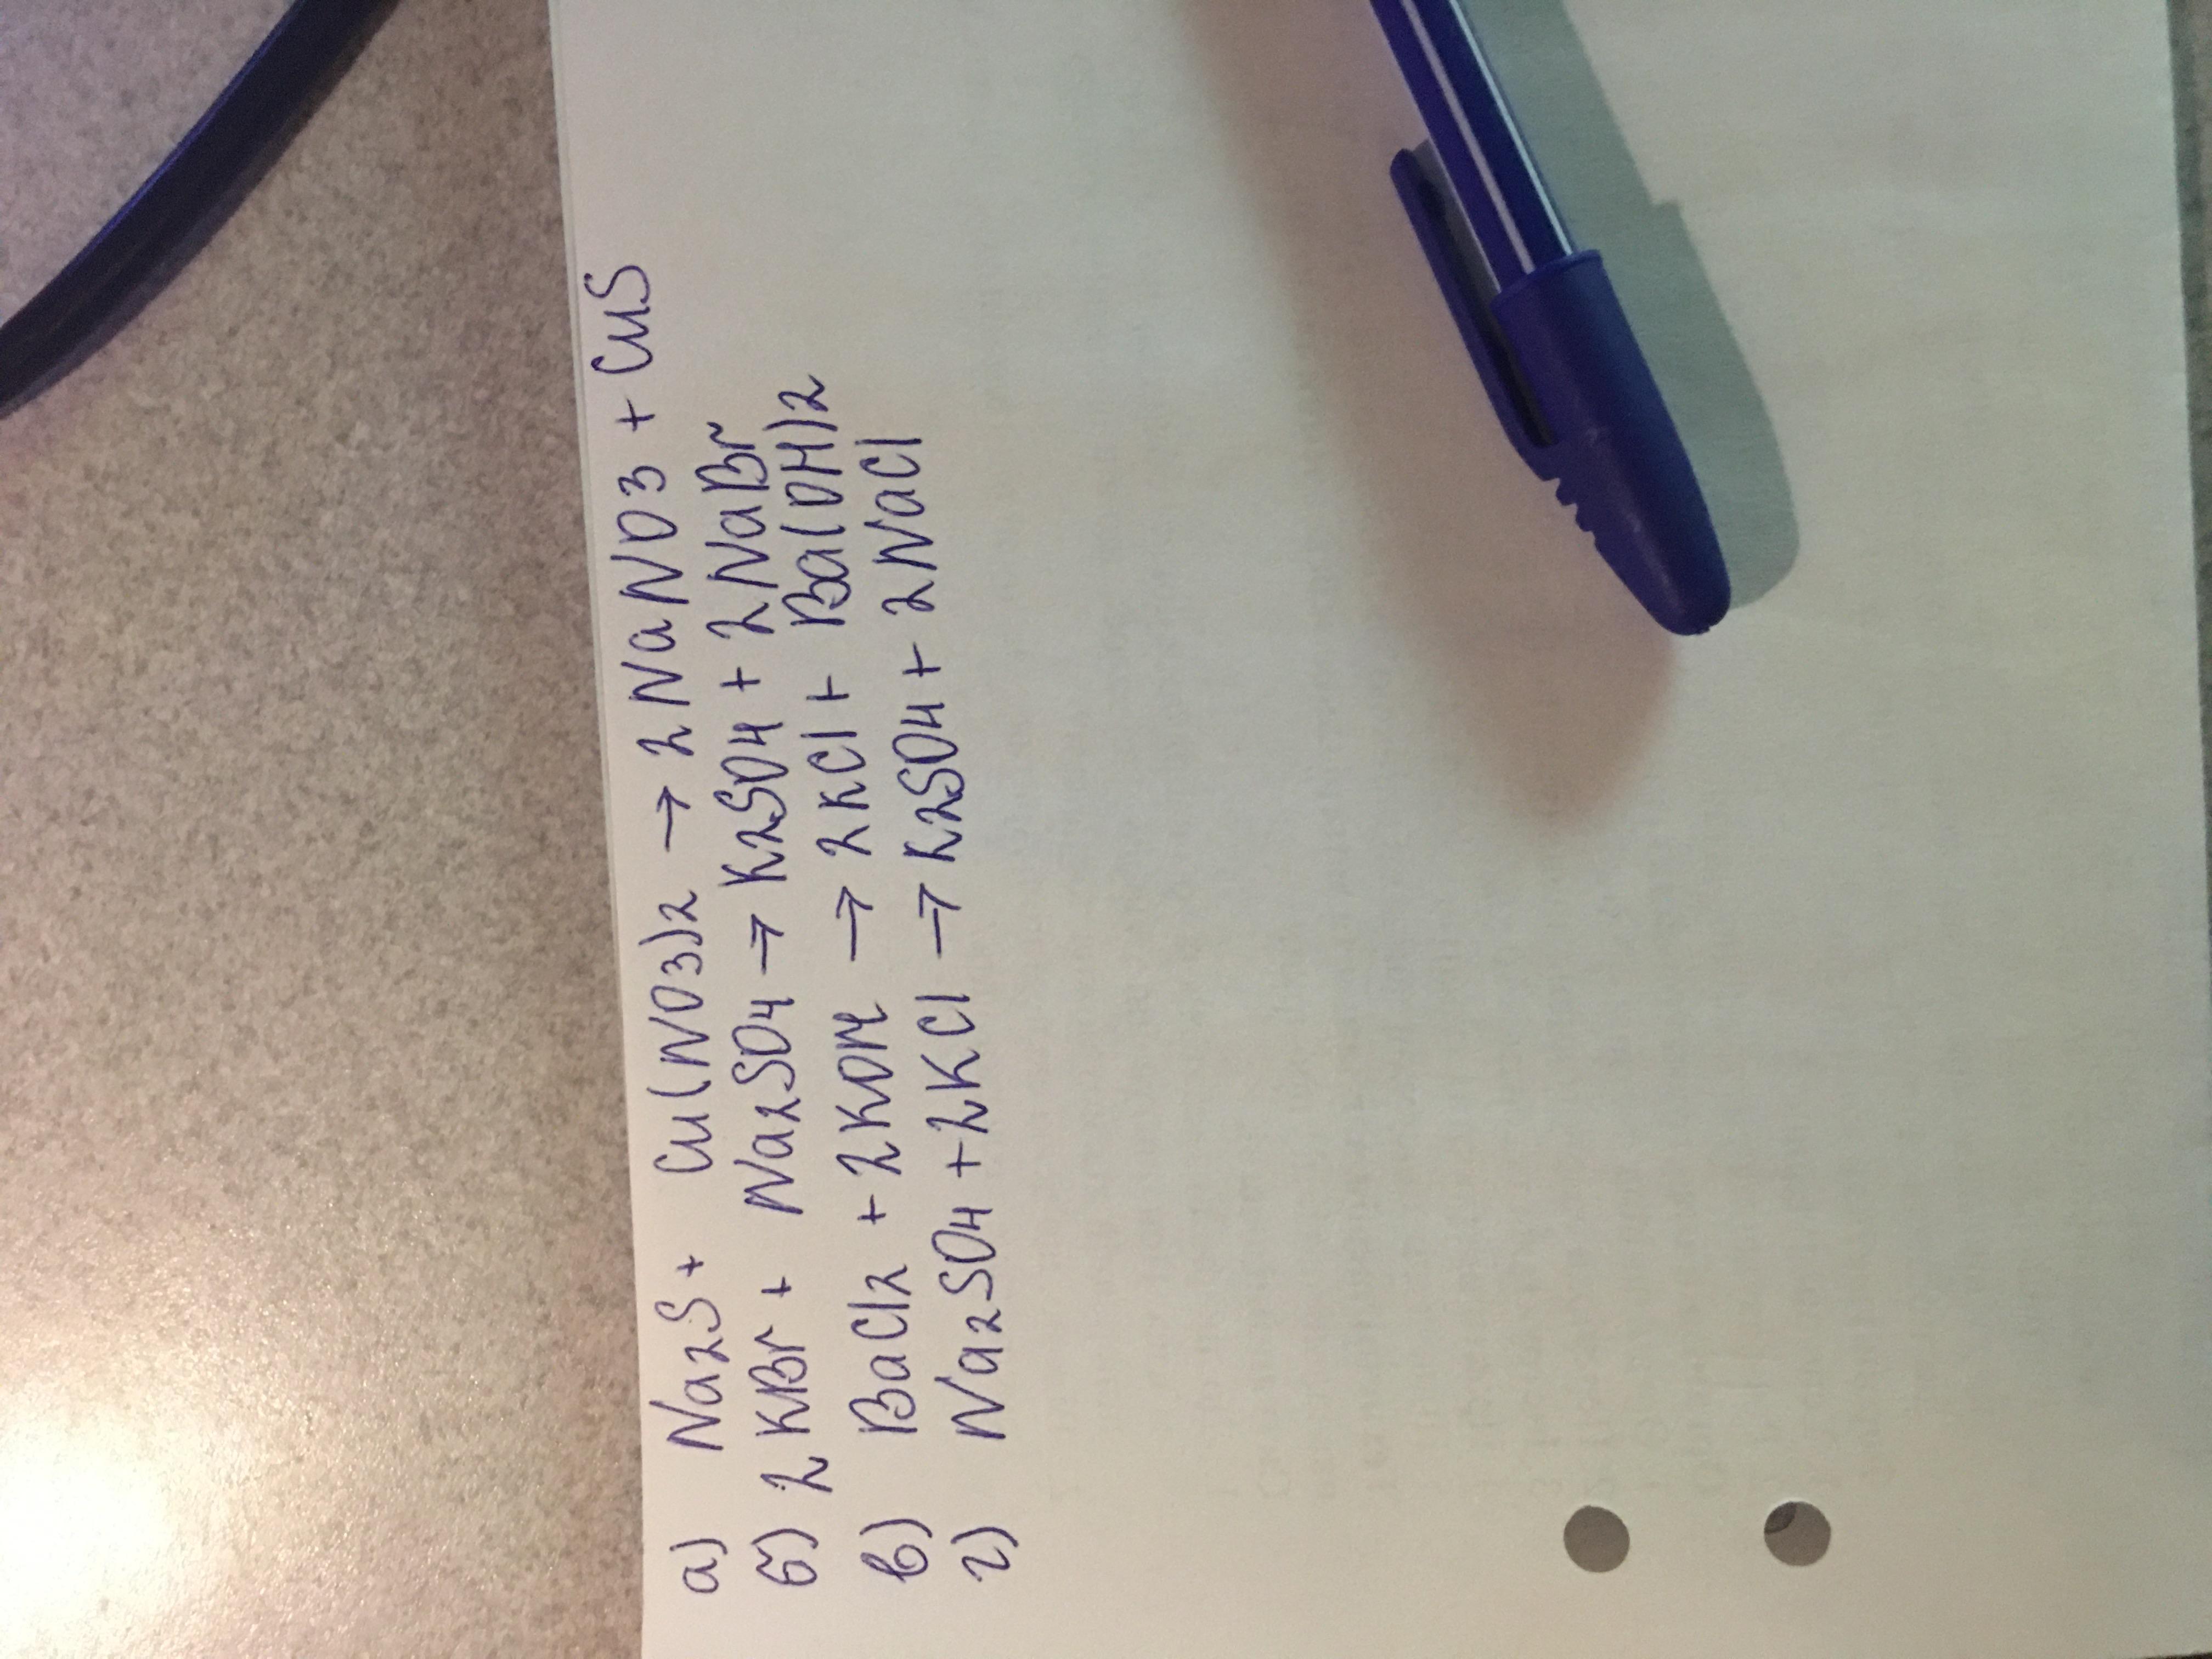 а) Na2S + Cu(NO3)2 → 2NaNO3 + CuS
б) 2KBr + Na2SO4 → K2SO4 + 2NaBr
в) BaCl2 + 2KOH → 2KCl + Ba(OH)2
г) Na2SO4 + 2KCl → K2SO4 + 2NaCl